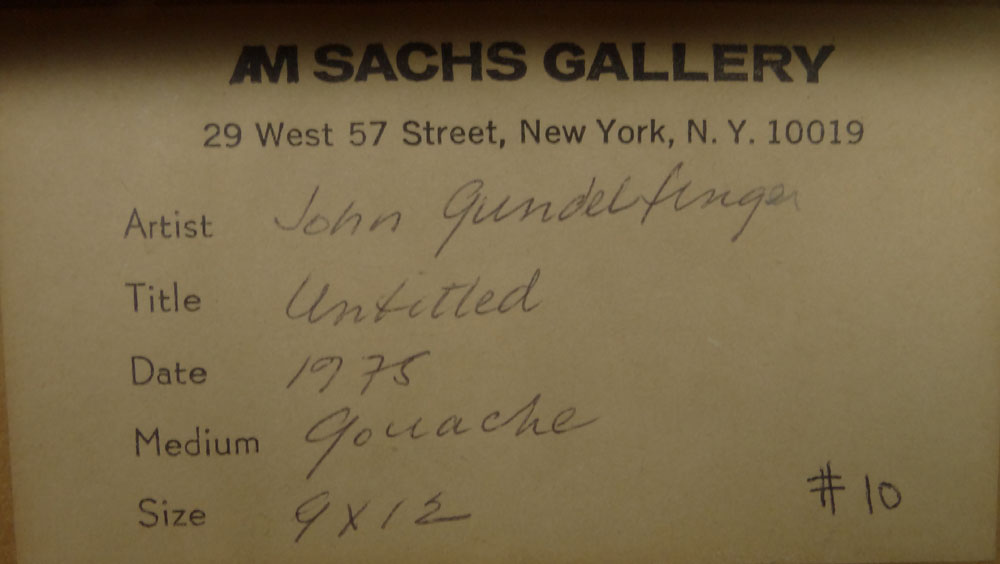 AM SACHS GALLERY
29 West 57 Street, New York, N. Y. 10019
Artist John Gundelfinger
Title Untitled
Date 1975
Medium Gouache
Size 9 x 12
#10